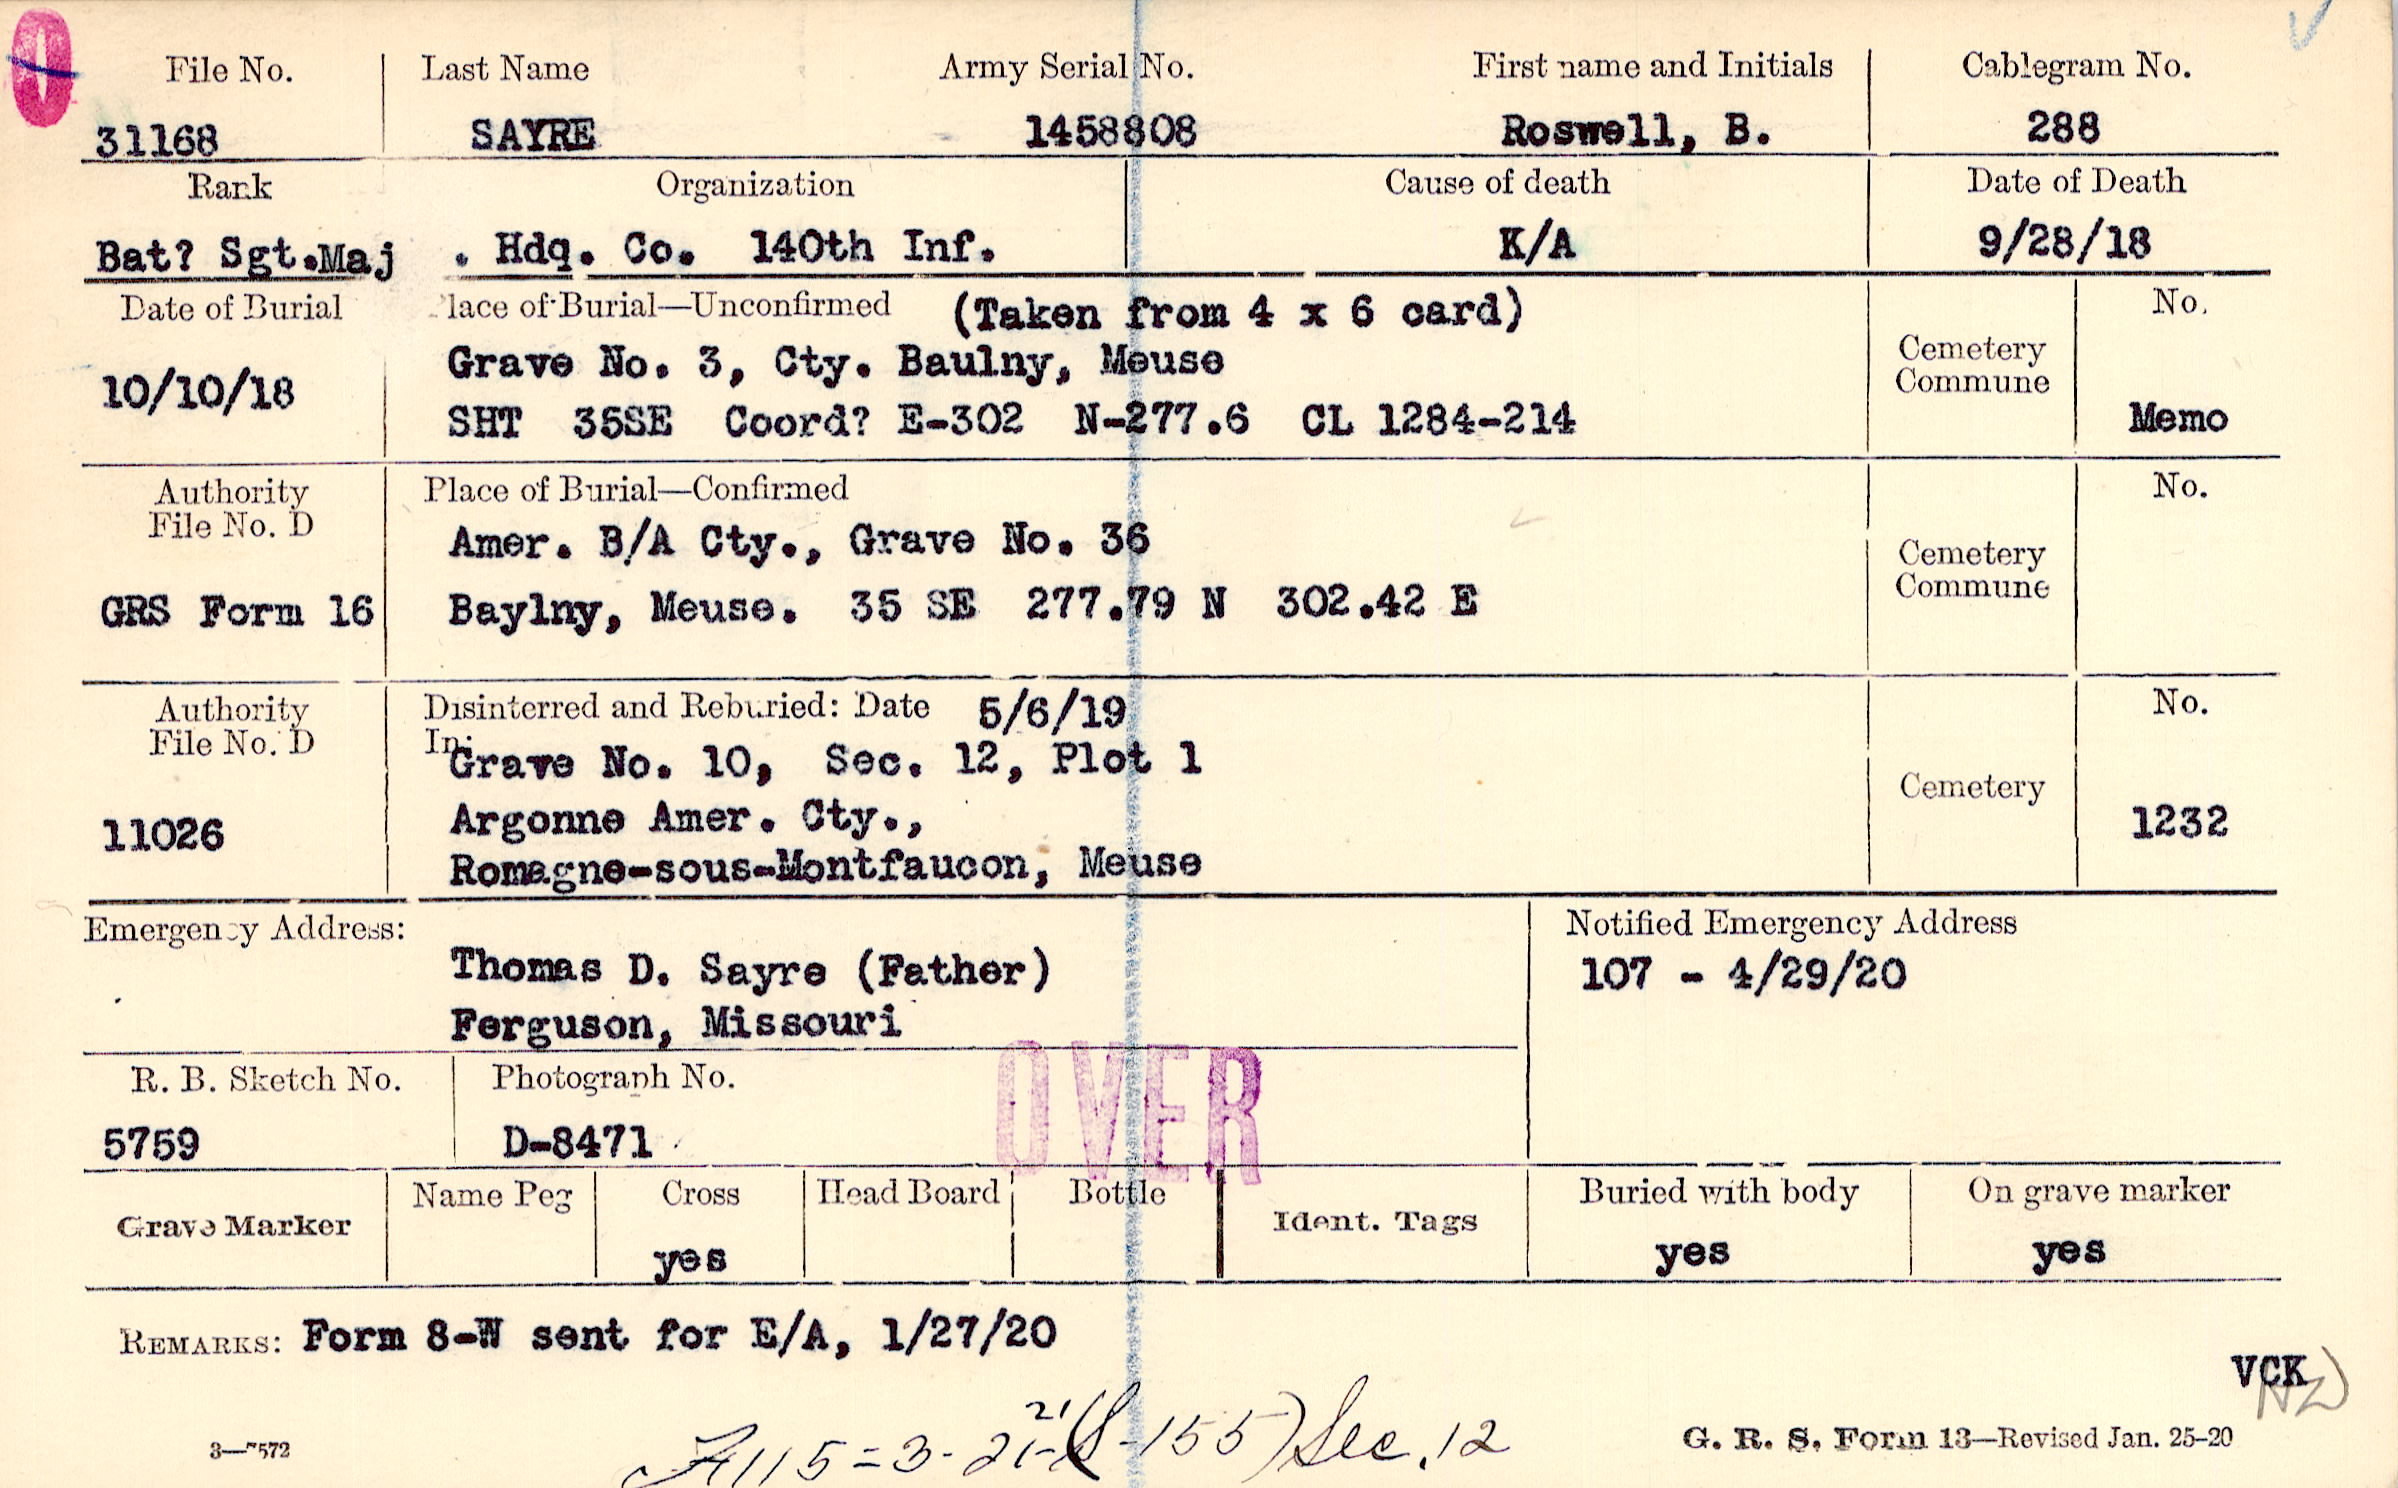 File No. Last Name Army Serial No. First name and Initials Cablegram No.
31168 SAYRE 1458808 Roswell, B. 288
Rank Organization Cause of death Date of Death
Bat? Sgt.Maj . Hdq. Co. 140th Inf. K/A 9/28/18
Date of Burial Place of Burial—Unconfirmed (Taken from 4 x 6 card) No.
Grave No. 3, Cty. Baulny, Meuse Cemetery
10/10/18 Commune
SHT 35SE Coord? E-302 N-277.6 CL 1284-214 Memo
Authority Place of Burial—Confirmed No.
File No. D
Amer. B/A Cty., Grave No. 36 Cemetery
GRS Form 16 Baylny, Meuse. 35 SE 277.79 N 302.42 E Commune
Authority Disinterred and Reburied: Date 5/6/19 No.
File No. D In:
Grave No. 10, Sec. 12, Plot 1 Cemetery
11026 Argonne Amer. Cty., 1232
Romagne-sous-Montfaucon, Meuse
Emergency Address: Notified Emergency Address
Thomas D. Sayre (Father) 107 - 4/29/20
Ferguson, Missouri
R. B. Sketch No. Photograph No.
OVER
5759 D-8471
Name Peg Cross Head Board Bottle Buried with body On grave marker
Grave Marker Ident. Tags
yes yes yes
REMARKS: Form 8-W sent for E/A, 1/27/20
VCK
21
115=3-21-(S-155) Sec. 12
3—7572 G. R. S. Form 13—Revised Jan. 25-20